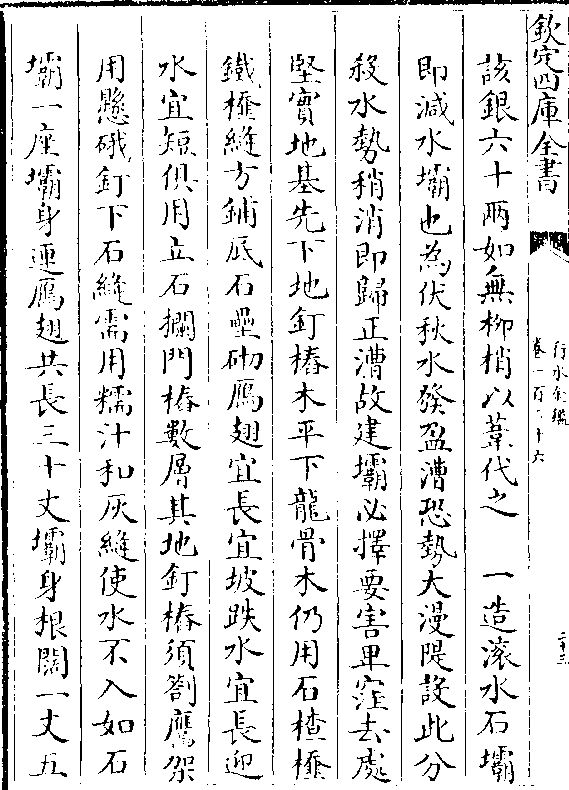 欽定四庫全書
行水金鑑
卷一百二十六
二十三
該銀六十兩如無柳梢以葦代之　一造滚水石壩
即減水壩也為伏秋水發盈漕恐勢大漫隄設此分
殺水勢稍消即歸正漕故建壩必擇要害卑窪去處
堅實地基先下地釘樁木平下龍骨木仍用石楂㯅
鐵㯅縫方鋪底石壘砌鴈翅宜長宜坡跌水宜長迎
水宜短俱用立石攔門樁數層其地釘樁須劄鷹架
用懸硪釘下石縫需用糯汁和灰縫使水不入如石
壩一座壩身連鴈翅共長三十丈壩身根闊一丈五